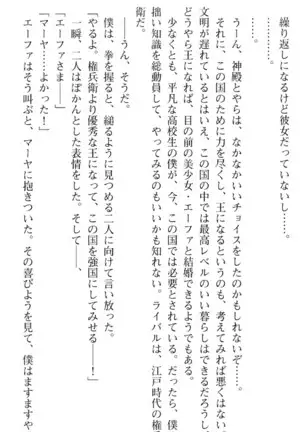 繰り返しになるけど彼女だっていないし……。
うーん、神殿とやらは、なかなかいいチョイスをしたのかもしれないぞ……。
それに、この国のために力を尽くし、王になるというのも、考えてみれば悪くはない。
文明が遅れているとはいえ、この国の中では最高レベルのいい暮らしはできるだろうし、
どうやら王になれば、目の前の美少女・エーファと結婚できるようでもある。
少なくとも、平凡な高校生の僕が、今、この国では必要とされている。だったら、僕の
拙い知識を総動員して、やってみるのもいいかも知れない。ライバルは、江戸時代の権兵
衛だ。
――うん、そうだ。
僕は、拳を握ると、縋るように見つめる二人に向けて言い放った。
「やるよ。権兵衛より優秀な王になって、この国を強国にしてみせる――！」
一瞬、二人はぽかんとした表情をした。そして――、
「エーファさま――！」
「マーヤ……よかった！」
エーファはそう叫ぶと、マーヤに抱きついた。その喜びようを見て、僕はますますや